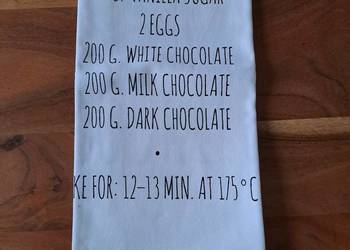 VANILLA SUGAR
2 EGGS
200 G. WHITE CHOCOLATE
200 G. MILK CHOCOLATE
200 G. DARK CHOCOLATE
•
KE FOR: 12–13 MIN. AT 175°C